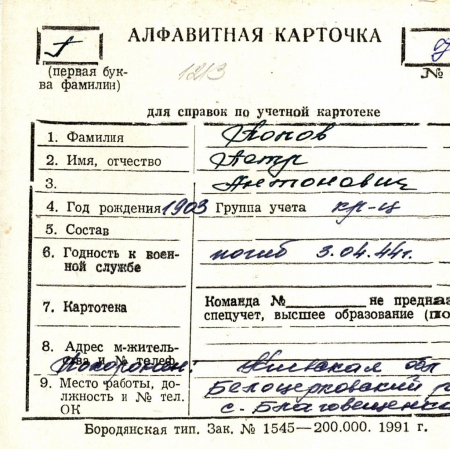 АЛФАВИТНАЯ КАРТОЧКА
(первая бук-
ва фамилии)
1213
№
для справок по учетной картотеке
1. Фамилия Попов
2. Имя, отчество Петр
3. Антонович
4. Год рождения 1903 Группа учета кр-ц
5. Состав
6. Годность к воен-
ной службе погиб 3.04.44г.
7. Картотека Команда № не предназ
спецучет, высшее образование (по
8. Адрес м-житель-
ства и № телеф. Похоронен Киевская обл
9. Место работы, до-
лжность и № тел.
ОК
Белоцерковский р
с. Благовещенка
Бородянская тип. Зак. № 1545—200.000. 1991 г.